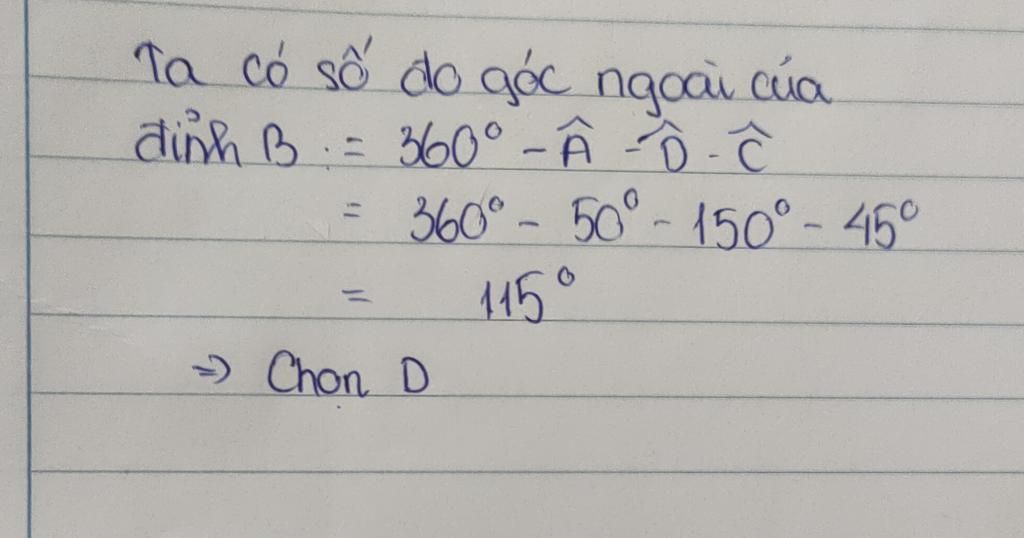 Ta có số do góc ngoài của
đỉnh B := 360° - Â - D̂ - Ĉ
= 360° - 50° - 150° - 45°
= 115°
=> Chọn D